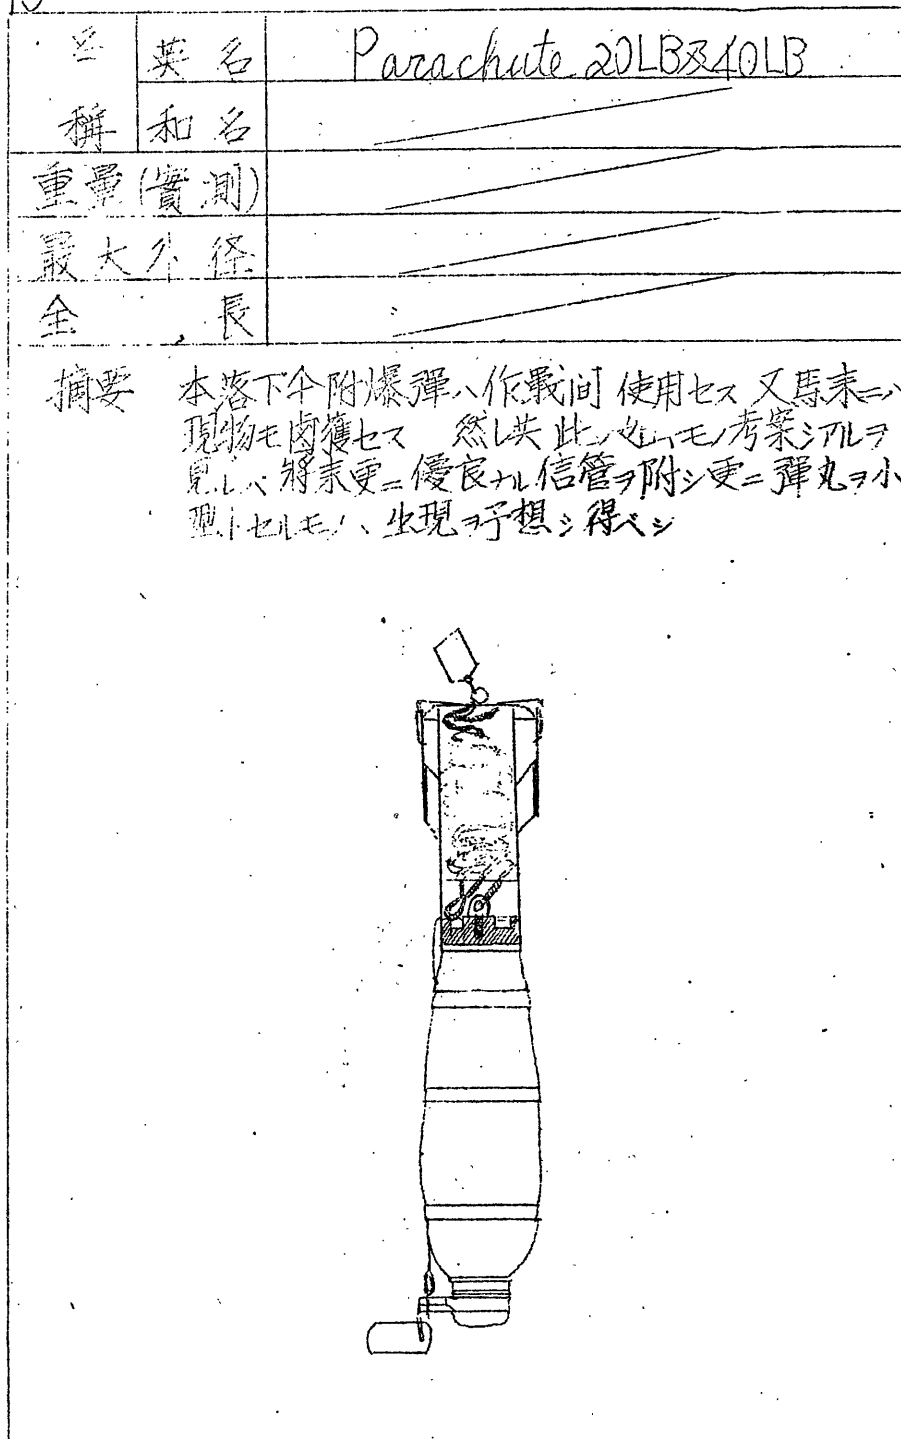 英名 Parachute 20LB及40LB
稱 和名
重量(實測)
最大外径
全長
摘要 本落下傘附爆彈ハ作戰间使用セス 又馬来ニハ
現物モ鹵獲セス 然レ共此ノ如キモノ考案シアルヲ
見レハ將来更ニ優良ナル信管ヲ附シ更ニ彈丸ヲ小
型トセルモノヽ出現ヲ予想シ得ベシ